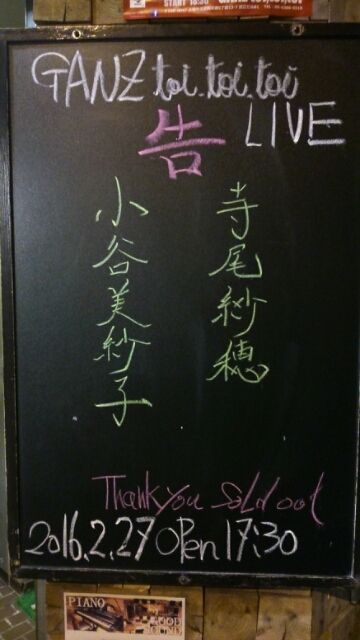 START 18:30
GANZ toi,toi,toi
告 LIVE
寺尾紗穂
小谷美紗子
Thank you Sold out
2016.2.27 OPen 17:30
PIANO